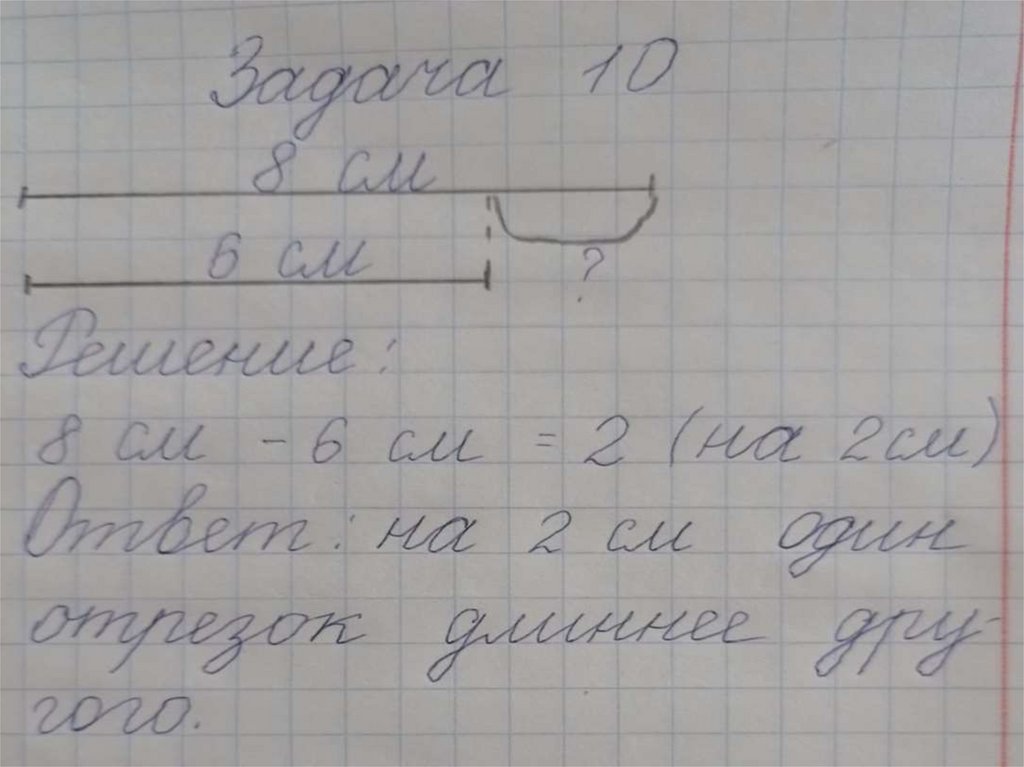 Задача 10
8 см
6 см ?
Решение:
8 см - 6 см = 2 (на 2см)
Ответ: на 2 см один
отрезок длиннее дру-
гого.